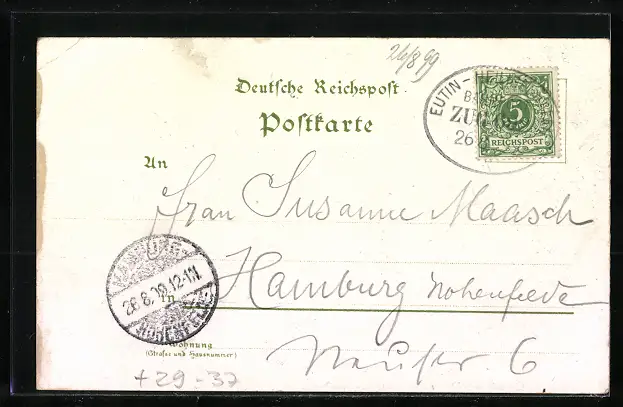 26/8 99
Deutsche Reichspost
Postkarte
EUTIN - NEU
ZUG
26
5
REICHSPOST
An
Frau Susanne Maasch
HAMBURG
26.8.99.12-1N.
HOHENFELDE
in
Hamburg Hohenfelde
Wohnung
(Strasse und Hausnummer)
6
+29-37